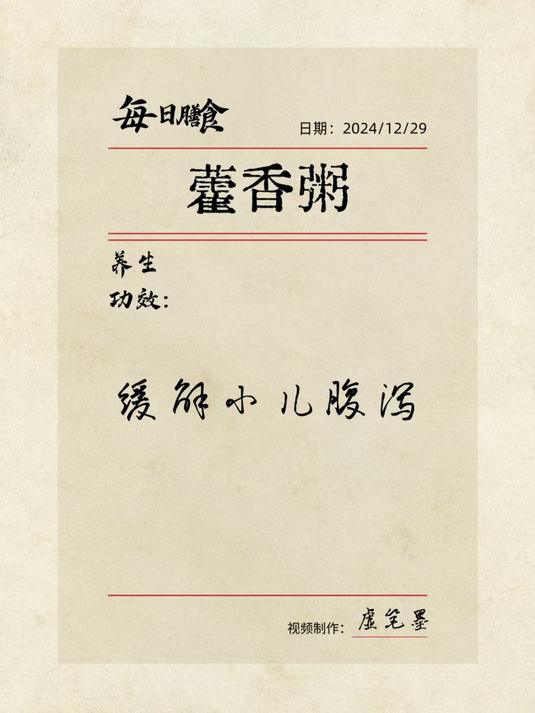 每日膳食
日期：2024/12/29
藿香粥
养生
功效：
缓解小儿腹泻
视频制作：虚笔墨